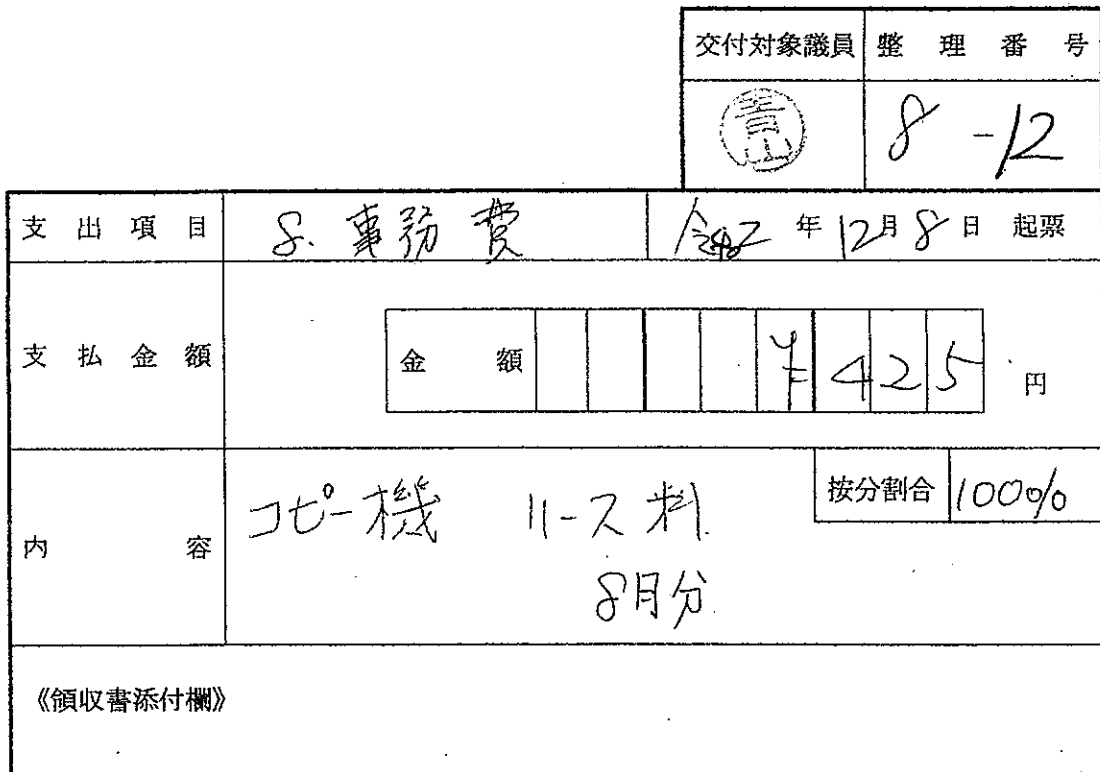 交付対象議員 整理番号
青山 8-12
支出項目 8. 事務費 令和2年12月8日 起票
支払金額 金額 ¥425円
内容 コピー機 リース料 按分割合 100%
8月分
《領収書添付欄》